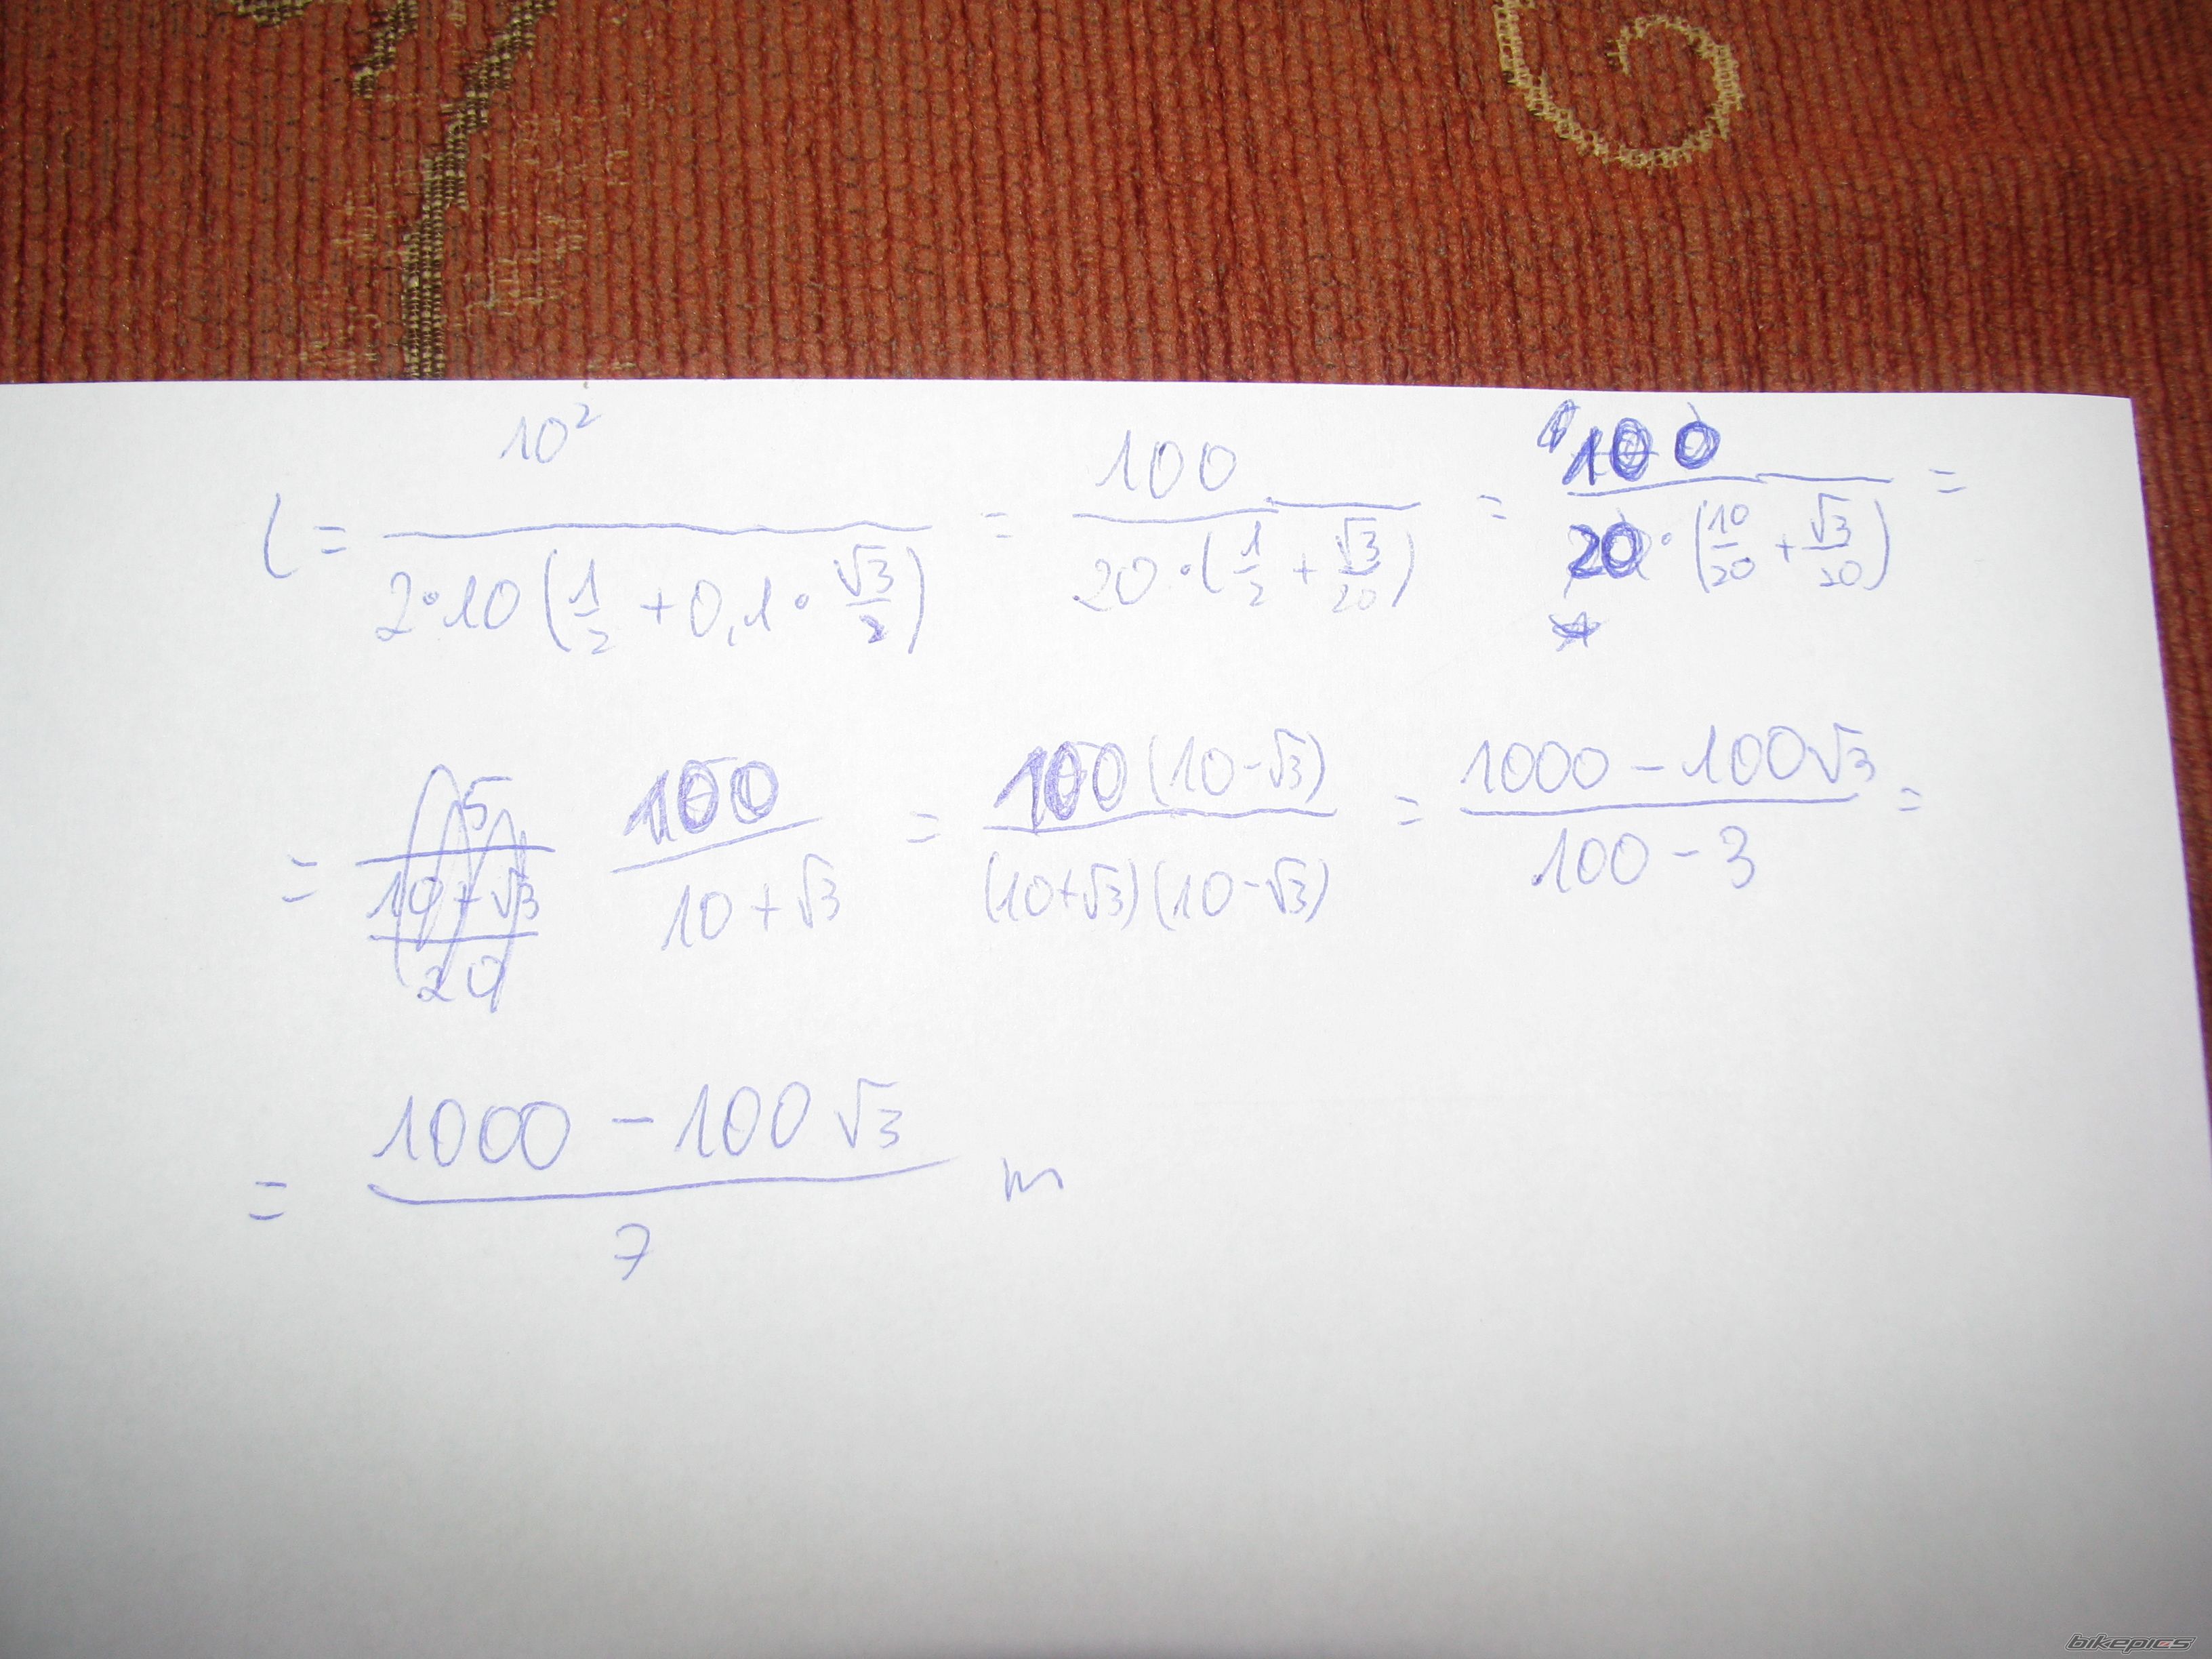 l = 10² / (2·10(1/2 + 0,1·√3/2)) = 100 / (20·(1/2 + √3/20)) = 100 / (20·(10/20 + √3/20)) =
= 100 / (10+√3) = 100(10-√3) / ((10+√3)(10-√3)) = (1000 - 100√3) / (100 - 3) =
= (1000 - 100√3) / 7 m
bikepics